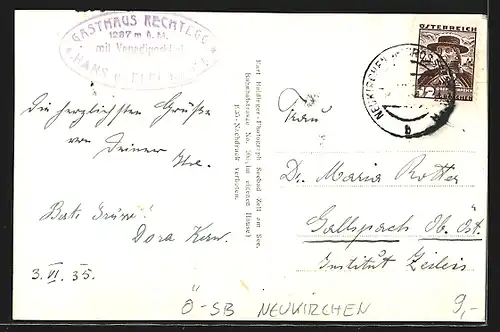 GASTHAUS RECHTEGG
1287 m ü. M.
mit Venedigerblick
HANS u.
Die herzlichsten Grüße
von Deiner
Bati Grüne!
Dora Kern.
3. VI. 35.
Karl Haidinger-Photograph Seebad Zell am See,
Bahnhofstrasse No. (im eigenen Hause)
Nachdruck verboten.
ÖSTERREICH
12
NEUKIRCHEN
b
Frau
Dr. Maria Rotter
Gallspach Ob. Öst.
Institut Zeileis
Ö-SB NEUKIRCHEN
9,-